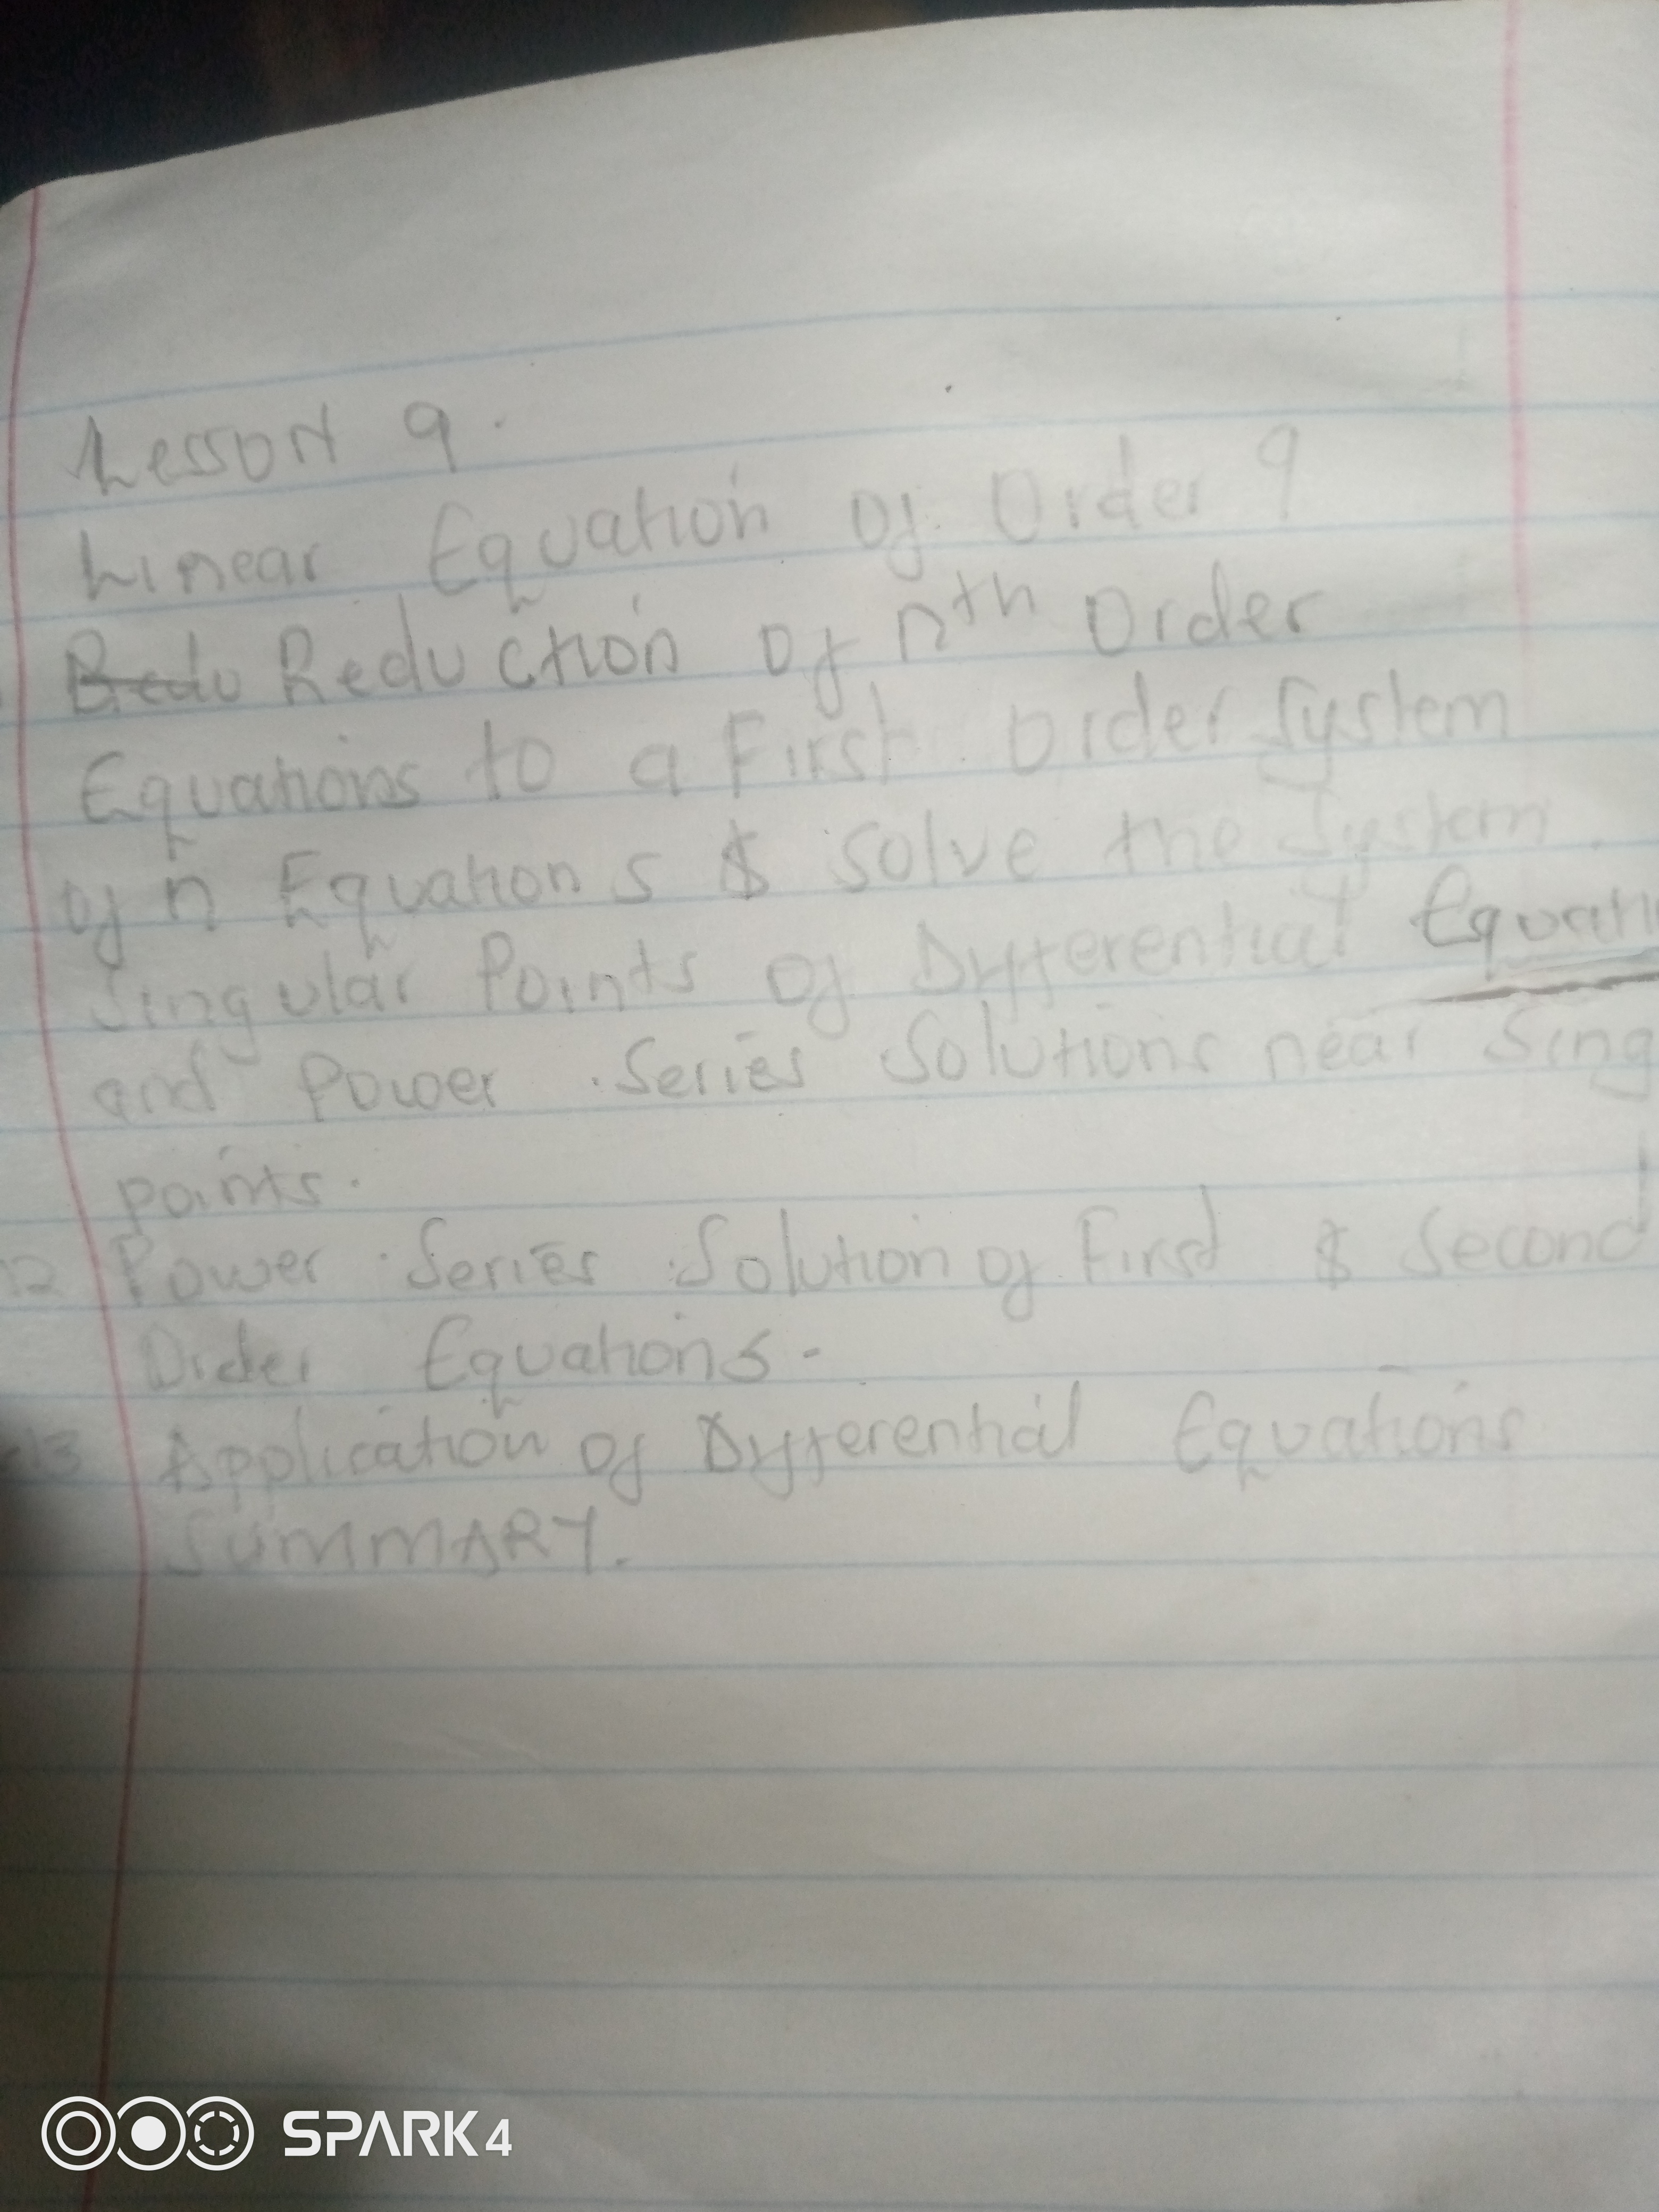 Lesson 9.
Linear Equation of Order 9
Redu Reduction of nth Order
Equations to a First Order System
of n Equations & solve the System.
Singular Points of Differential Equati
and Power Series Solutions near Sing
points.
12 Power Series Solution of First & Second
Order Equations.
13 Application of Differential Equations
SUMMARY.
SPARK 4